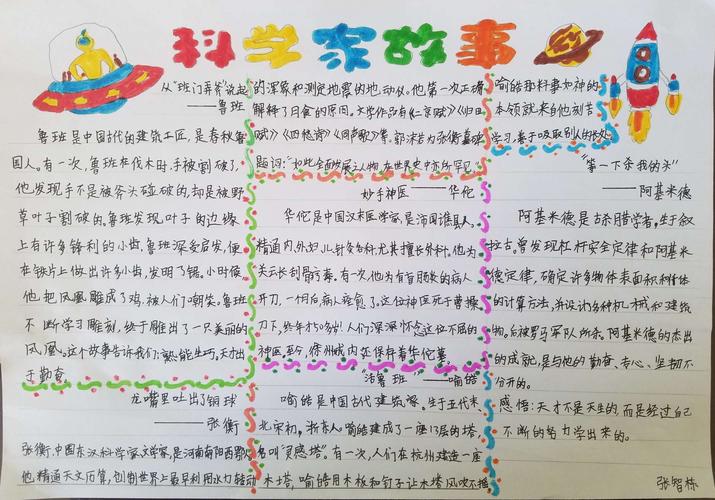 科学家故事
从“班门弄斧”说起
——鲁班
鲁班是中国古代的建筑工匠，是春秋鲁
国人。有一次，鲁班在伐木时，手被割破了，
他发现手不是被斧头碰破的，却是被野
草叶子割破的。鲁班发现叶子的边缘
上有许多锋利的小齿。鲁班深受启发，便
在铁片上做出许多小齿，发明了锯。小时候
他把凤凰雕成了鸡，被人们嘲笑。鲁班
不断学习雕刻，终于雕出了一只美丽的
凤凰。这个故事告诉我们：熟能生巧，天才出
于勤奋。
龙嘴里吐出了铜球
——张衡
张衡，中国东汉科学家文学家，是河南南阳西鄂人
他精通天文历算，创制世界上最早利用水力转动
的浑象和测定地震的地动仪。他第一次正确
解释了日食的原因。文学作品有《二京赋》《归田
赋》《四愁诗》《同声歌》等。郭沫若为张衡墓碑
题词：“如此全面发展之人物，在世界史中亦所罕见”
妙手神医——华佗
华佗是中国汉末医学家，是沛国谯县人。
精通内、外、妇、儿、针灸各科，尤其擅长外科。他为
关云长刮骨疗毒。有一次，他为有盲肠炎的病人
开刀，一个月后病痊愈了。这位神医死于曹操
刀下，终年才50多岁！人们深深怀念这位不屈的
神医，至今，徐州城内还保存着华佗墓
“活鲁班”——喻皓
喻皓是中国古代建筑家。生于五代末
北宋初，浙东人。喻皓建成了一座13层的塔，
名叫“灵感塔”。有一次，人们在杭州建造一座
木塔，喻皓用木板和钉子让木塔风吹不摇
喻皓那料事如神的
本领就来自他刻苦
学习，善于吸取别人的长处。
“等一下杀我的头”
——阿基米德
阿基米德是古希腊学者，生于叙
拉古。曾发现杠杆安全定律和阿基米
德定律，确定许多物体表面积和体
的计算方法，并设计多种机械和建筑
物。后被罗马军队所杀。阿基米德的杰出
的成就，是与他的勤奋、专心、坚韧不
分开的。
感悟：天才不是天生的，而是经过自己
不断的努力学出来的。
张智栋